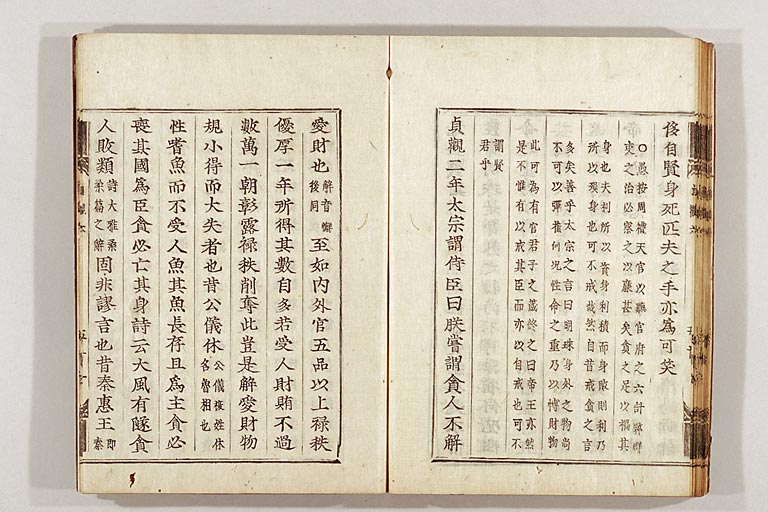 侈自賢身死匹夫之手亦爲可笑
○愚按周禮天官以聽官府之六計弊群
吏之治必察之以廉甚矣貪之足以禍其
身也夫利所以資身利積而身敗則利乃
所以殞身也可不戒哉然自昔戒貪之言
多矣善乎太宗之言曰明珠身外之物尚
不可以彈雀何況性命之重乃以博財物
此可為有官君子之箴終之曰帝王亦然
是不惟有以戒其臣而亦以自戒也可不
謂賢
君乎
貞觀二年太宗謂侍臣曰朕嘗謂貪人不解
愛財也解音懈後同至如内外官五品以上祿秩
優厚一年所得其數自多若受人財賄不過
數萬一朝彰露祿秩削奪此豈是解愛財物
規小得而大失者也昔公儀休公儀複姓休名魯相也
性嗜魚而不受人魚其魚長存且爲主貪必
喪其國爲臣貪必亡其身詩云大風有隧貪
人敗類詩大雅桑柔篇之辭固非謬言也昔秦惠王即秦